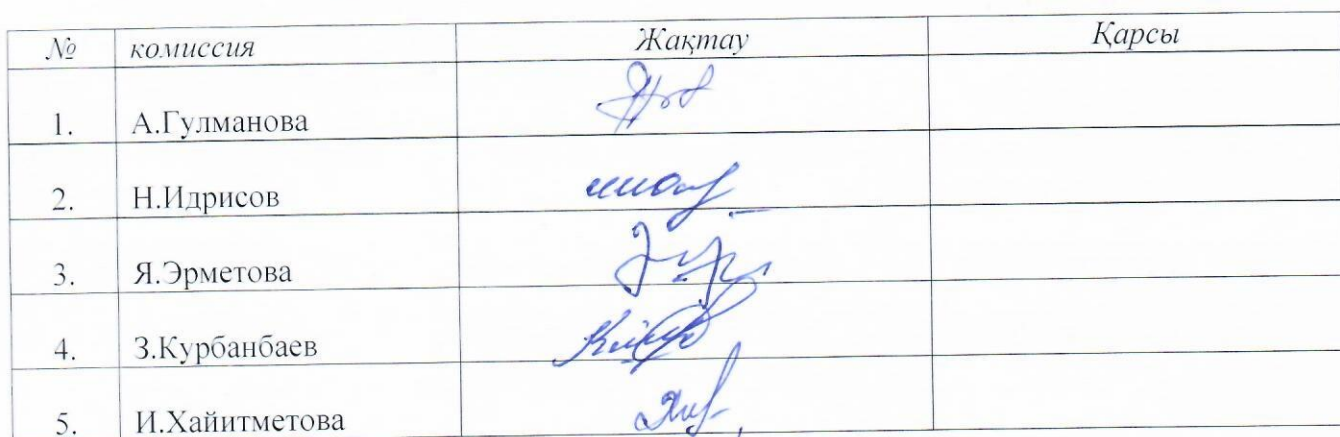 № комиссия Жақтау Қарсы
1. А.Гулманова
2. Н.Идрисов
3. Я.Эрметова
4. З.Курбанбаев
5. И.Хайитметова